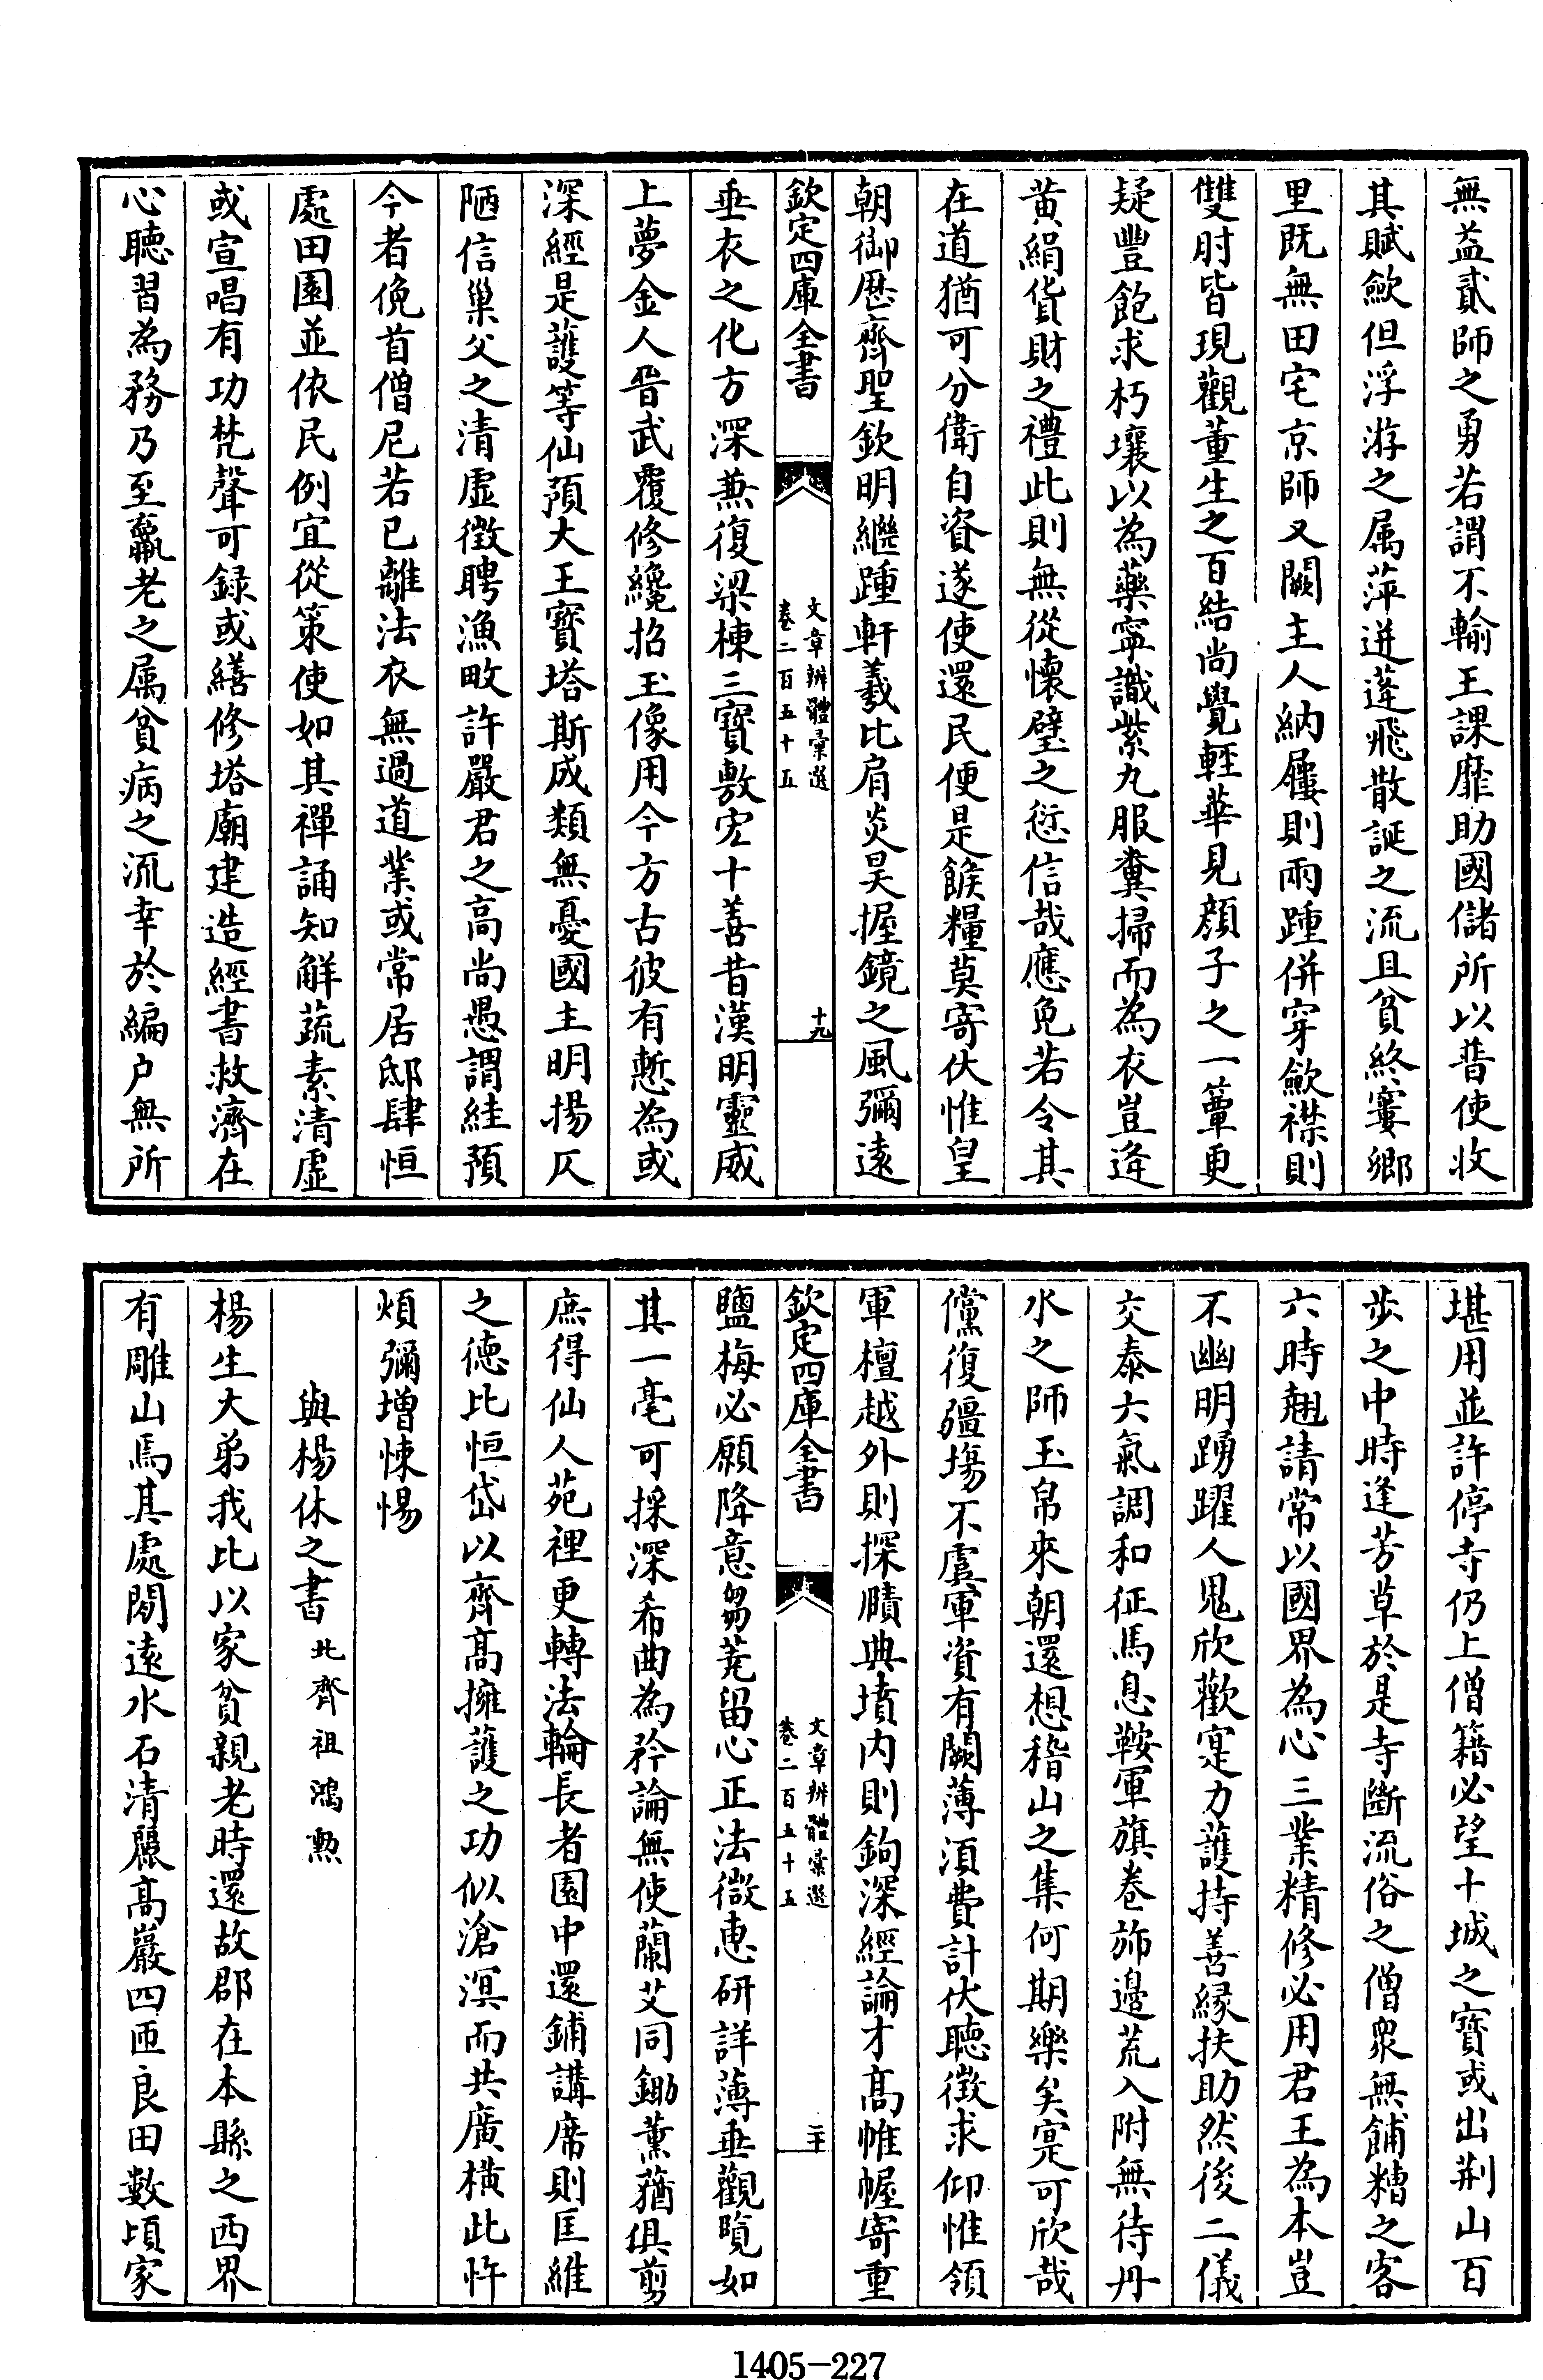 無益貳師之勇若謂不輸王課靡助國儲所以普使收
其賦歛但浮游之属萍迸蓬飛散誕之流且貧終窶鄉
里既無田宅京師又闕主人納屨則兩踵併穿歛襟則
雙肘皆現觀董生之百結尚覺輕華見顔子之一簞更
疑豐飽求朽壤以為藥寧識紫丸服糞掃而為衣豈逄
黄絹貨財之禮此則無從懷璧之愆信哉應免若令其
在道猶可分衛自資遂使還民便是餱糧莫寄伏惟皇
朝御厯齊聖欽明繼踵軒羲比肩炎昊握鏡之風彌遠
欽定四庫全書
文章辨體彚選
卷二百五十五
十九
垂衣之化方深兼復梁棟三寳敷宏十善昔漢明靈感
上夢金人晉武覆修纔招玉像用今方古彼有慙為或
深經是護等仙預大王寳塔斯成類無憂國主明揚仄
陋信巢父之清虚徴聘漁畋許嚴君之高尚愚謂絓預
今者俛首僧尼若已離法衣無過道業或常居邸肆恒
處田園並依民例宜從策使如其禪誦知解蔬素清虚
或宣唱有功梵聲可録或繕修塔廟建造經書救濟在
心聴習為務乃至羸老之属貧病之流幸於編户無所
堪用並許停寺仍上僧籍必望十城之寳或出荆山百
歩之中時逢芳草於是寺斷流俗之僧衆無餔糟之客
六時翹請常以國界為心三業精修必用君王為本豈
不幽明踴躍人鬼欣歡寔力護持善縁扶助然後二儀
交泰六氣調和征馬息鞍軍旗卷斾邉荒入附無待丹
水之師玉帛來朝還想稽山之集何期樂矣寔可欣哉
儻復疆塲不虞軍資有闕薄湏費計伏聴徴求仰惟領
軍檀越外則探賾典墳内則鉤深經論才髙帷幄寄重
欽定四庫全書
文章辨體彚選
卷二百五十五
二十
鹽梅必願降意芻蕘留心正法微惠研詳薄垂觀覧如
其一毫可採深希曲為矜論無使蘭艾同鋤薫蕕俱剪
庶得仙人苑裡更轉法輪長者園中還鋪講席則匡維
之徳比恒岱以齊髙擁護之功似滄溟而共廣横此忤
煩彌增悚惕
與楊休之書北齊祖鴻勲
楊生大弟我比以家貧親老時還故郡在本縣之西界
有雕山焉其處閒遠水石清麗髙巖四匝良田數頃家
1405-227